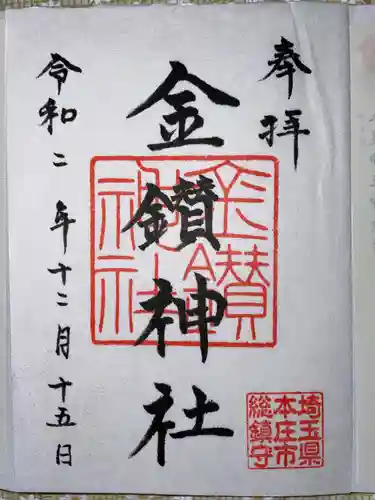 奉拝
金鑚神社
令和二年十二月十五日
埼玉県
本庄市
総鎮守